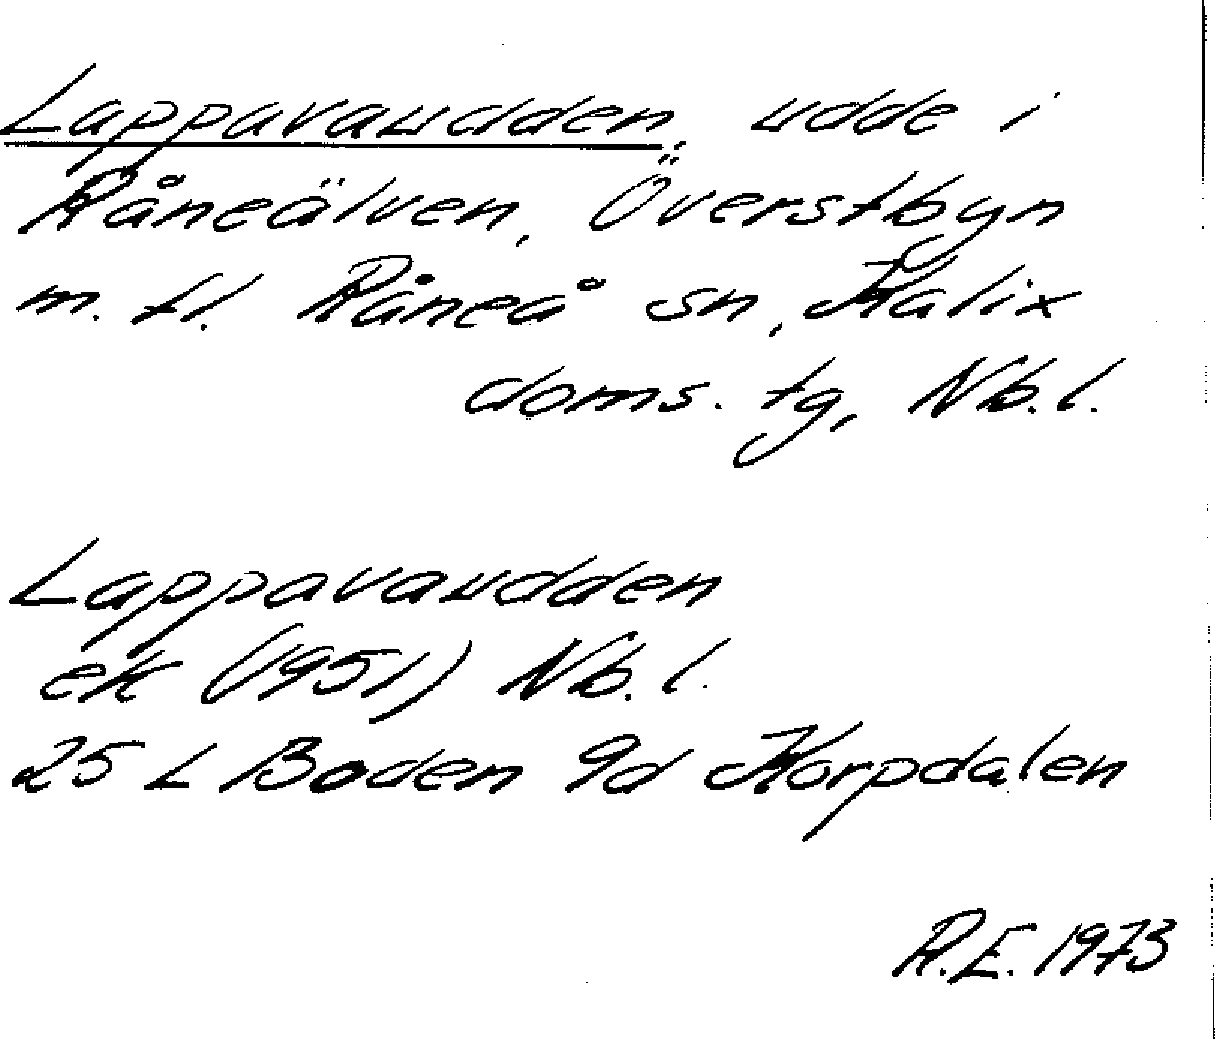 Lappavaudden, udde i
Råneälven, Överstbyn
m. fl. Råneå sn, Kalix
doms. tg, Nb. l.
Lappavaudden
ek (1951) Nb. l.
25 L Boden 9d Korpdalen
R.E. 1973